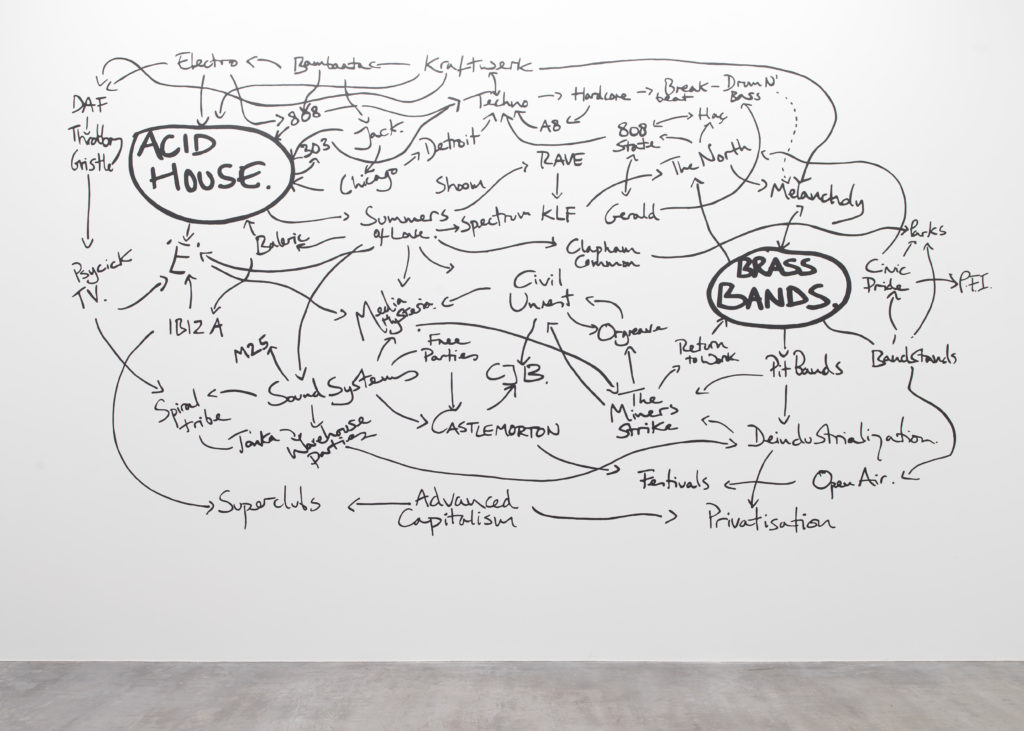 Electro
Bambaataa
Kraftwerk
DAF
808
Techno
Hardcore
Break-
beat
Drum N'
Bass
Throbbing
Gristle
ACID
HOUSE.
303
Jack.
Detroit
A8
808
State
Hac
Chicago
RAVE
The North
Shoom
Melancholy
Summers
of Love.
Spectrum
KLF
Gerald
Baleric
'E'.
Clapham
Common
Parks
Psycick
TV.
BRASS
BANDS.
Civic
Pride
P.F.I.
IBIZA
Media
Hysteria.
Civil
Unrest
Orgreave
M25
Free
Parties
Return
to Work
Pit Bands
Bandstands
Sound Systems
CJB.
Spiral
tribe
Tonka
Warehouse
Parties
CASTLEMORTON
The
Miners
Strike
Deindustrialization.
Festivals
Open Air.
Superclubs
Advanced
Capitalism
Privatisation